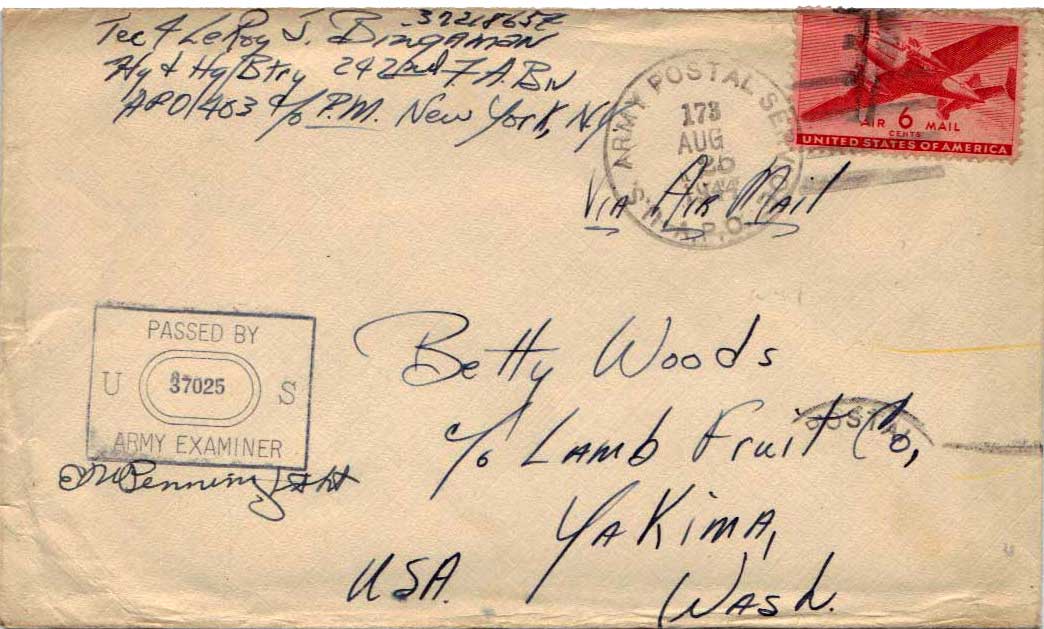 37218657
Tec 4 LeRoy J. Bingaman
Hq & Hq Btry 242nd F.A. Bn
APO 403 c/o P.M. New York, N.Y.
ARMY POSTAL SERVICE
173
AUG
1944
A.P.O.
AIR 6 MAIL
CENTS
UNITED STATES OF AMERICA
Via Air Mail
PASSED BY
U 37025 S
ARMY EXAMINER
Betty Woods
c/o Lamb Fruit Co,
POSTAL
Yakima,
Wash.
USA.